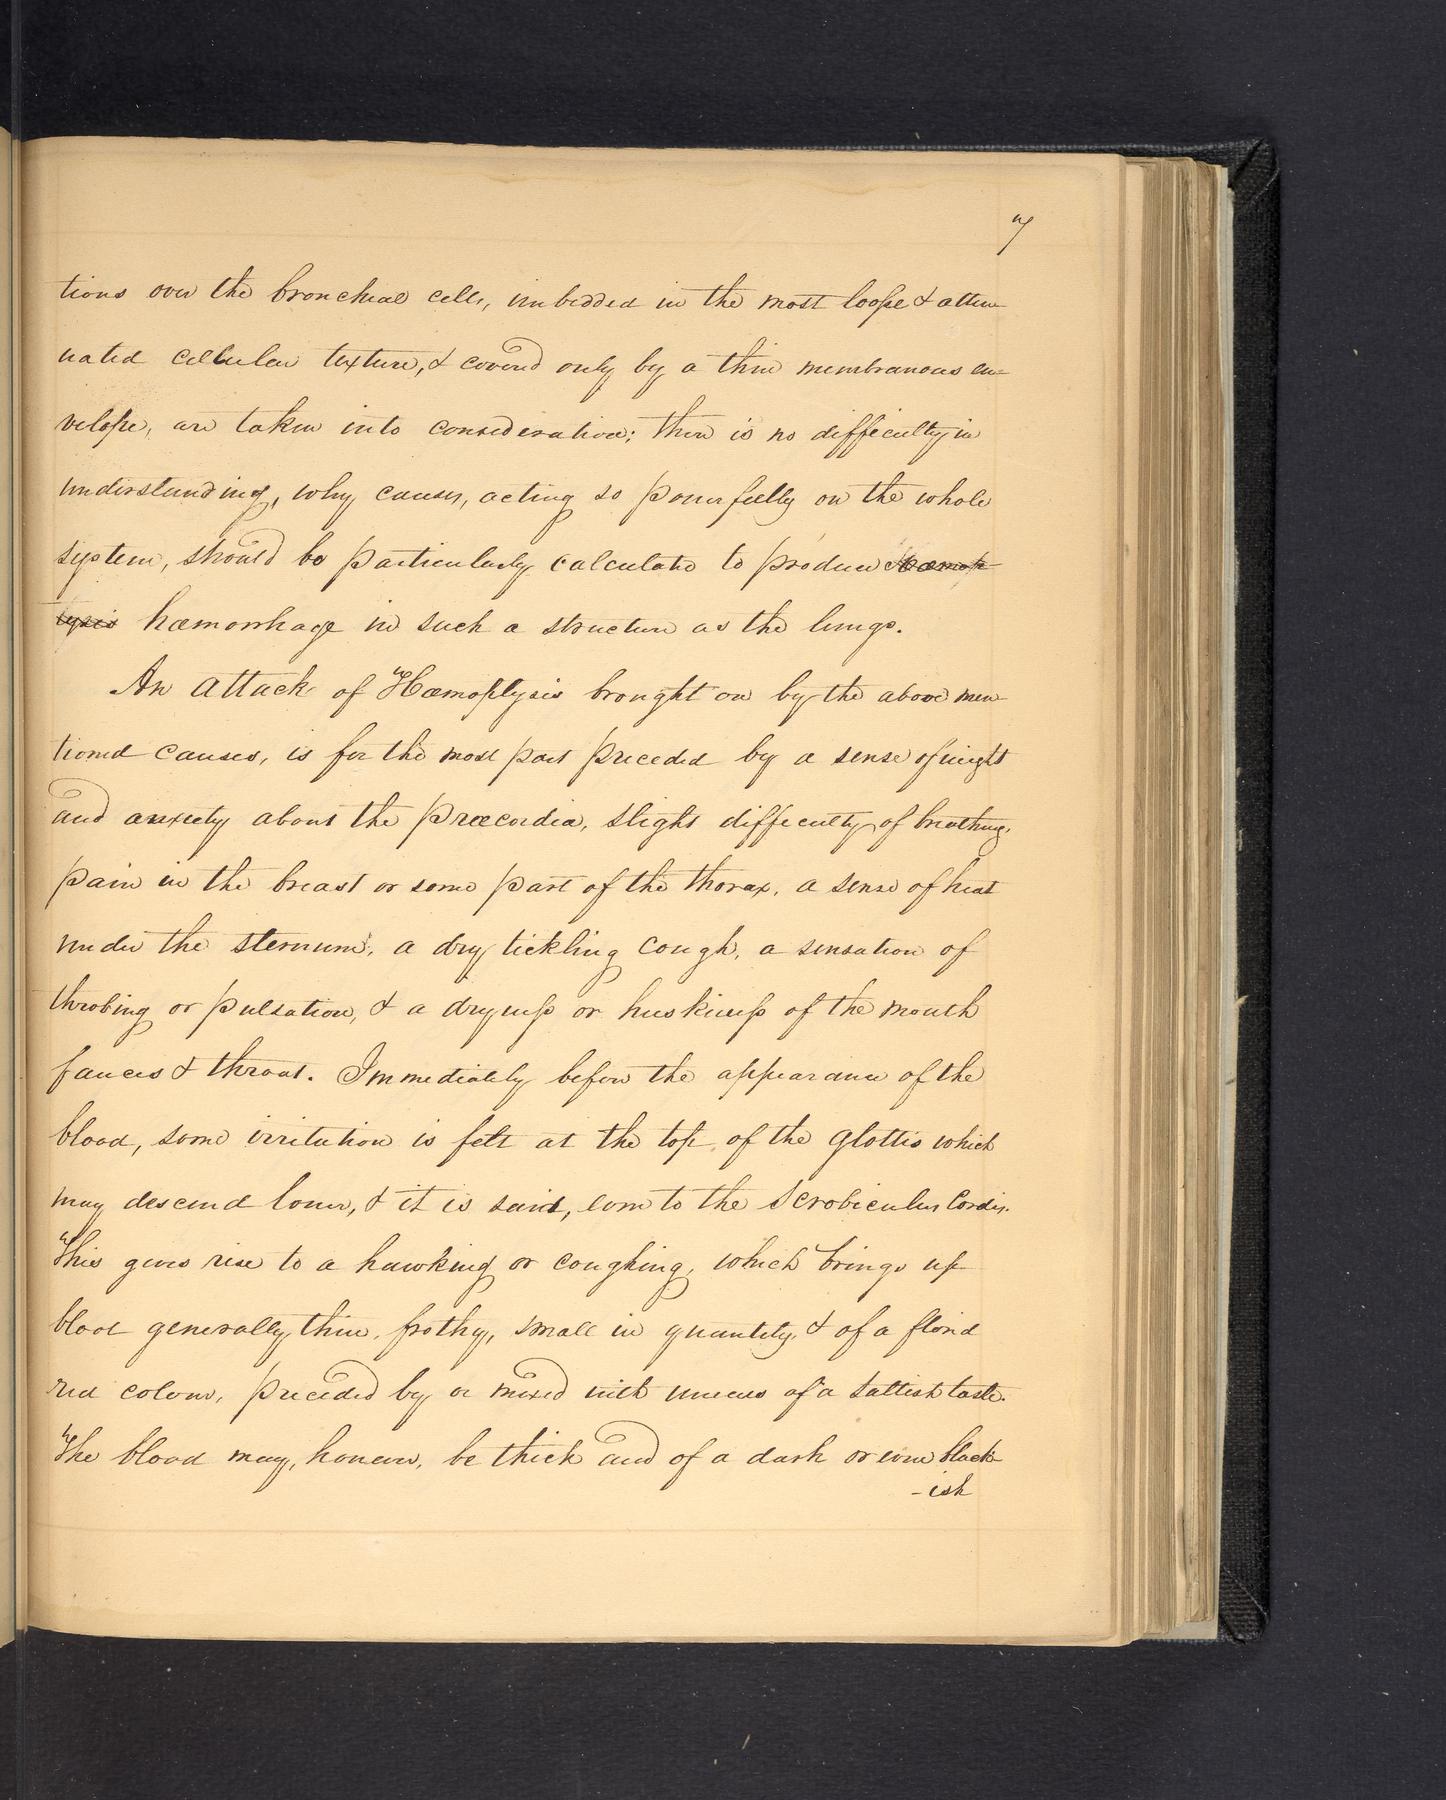 7
tions over the bronchial cells, imbedded in the most loose & atten
uated cellular texture, & covered only by a thin membranous en=
velope, are taken into consideration; there is no difficulty in
understanding, why causes, acting so powerfully on the whole
system, should be particularly calculated to produce Hæmop
tysis hæmorrhage in such a structure as the lungs.
An attack of Hæmoptysis brought on by the above men
tioned causes, is for the most part preceded by a sense of weight
and anxiety about the præcordia, slight difficulty of breathing,
pain in the breast or some part of the thorax, a sense of heat
under the sternum, a dry tickling cough, a sensation of
throbing or pulsation, & a dryness or huskiness of the mouth
fauces & throat. Immediately before the appearance of the
blood, some irritation is felt at the top of the glottis which
may descend lower, & it is said, even to the Scrobiculus Cordis.
This gives rise to a hawking or coughing, which brings up
blood generally thin, frothy, small in quantity, & of a florid
red colour, preceded by or mixed with mucus of a saltish taste.
The blood may, however, be thick and of a dark or even black
-ish